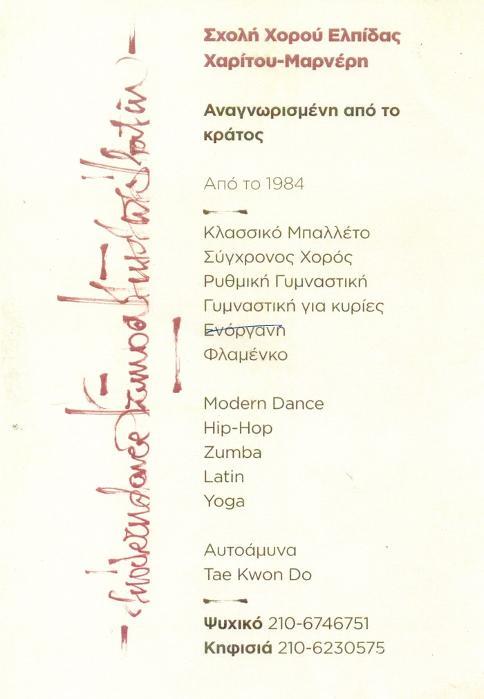 Σχολή Χορού Ελπίδας
Χαρίτου-Μαρνέρη
Αναγνωρισμένη από το
κράτος
Από το 1984
Κλασσικό Μπαλλέτο
Σύγχρονος Χορός
Ρυθμική Γυμναστική
Γυμναστική για κυρίες
Ενόργανη
Φλαμένκο
Modern Dance
Hip-Hop
Zumba
Latin
Yoga
Αυτοάμυνα
Tae Kwon Do
Ψυχικό 210-6746751
Κηφισιά 210-6230575